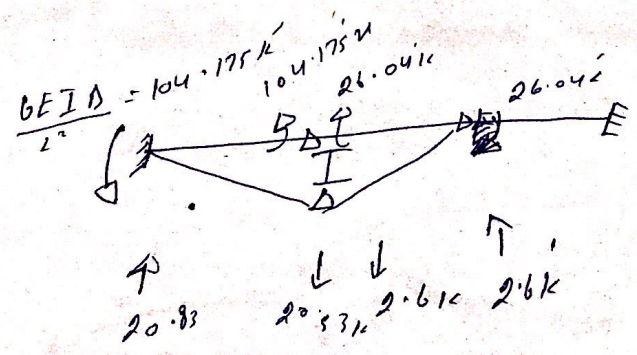 6EIΔ/L² = 104.175 k'
104.175 k'
26.04 k'
26.04 k'
Δ
20.83
20.83k
2.6k
2.6k